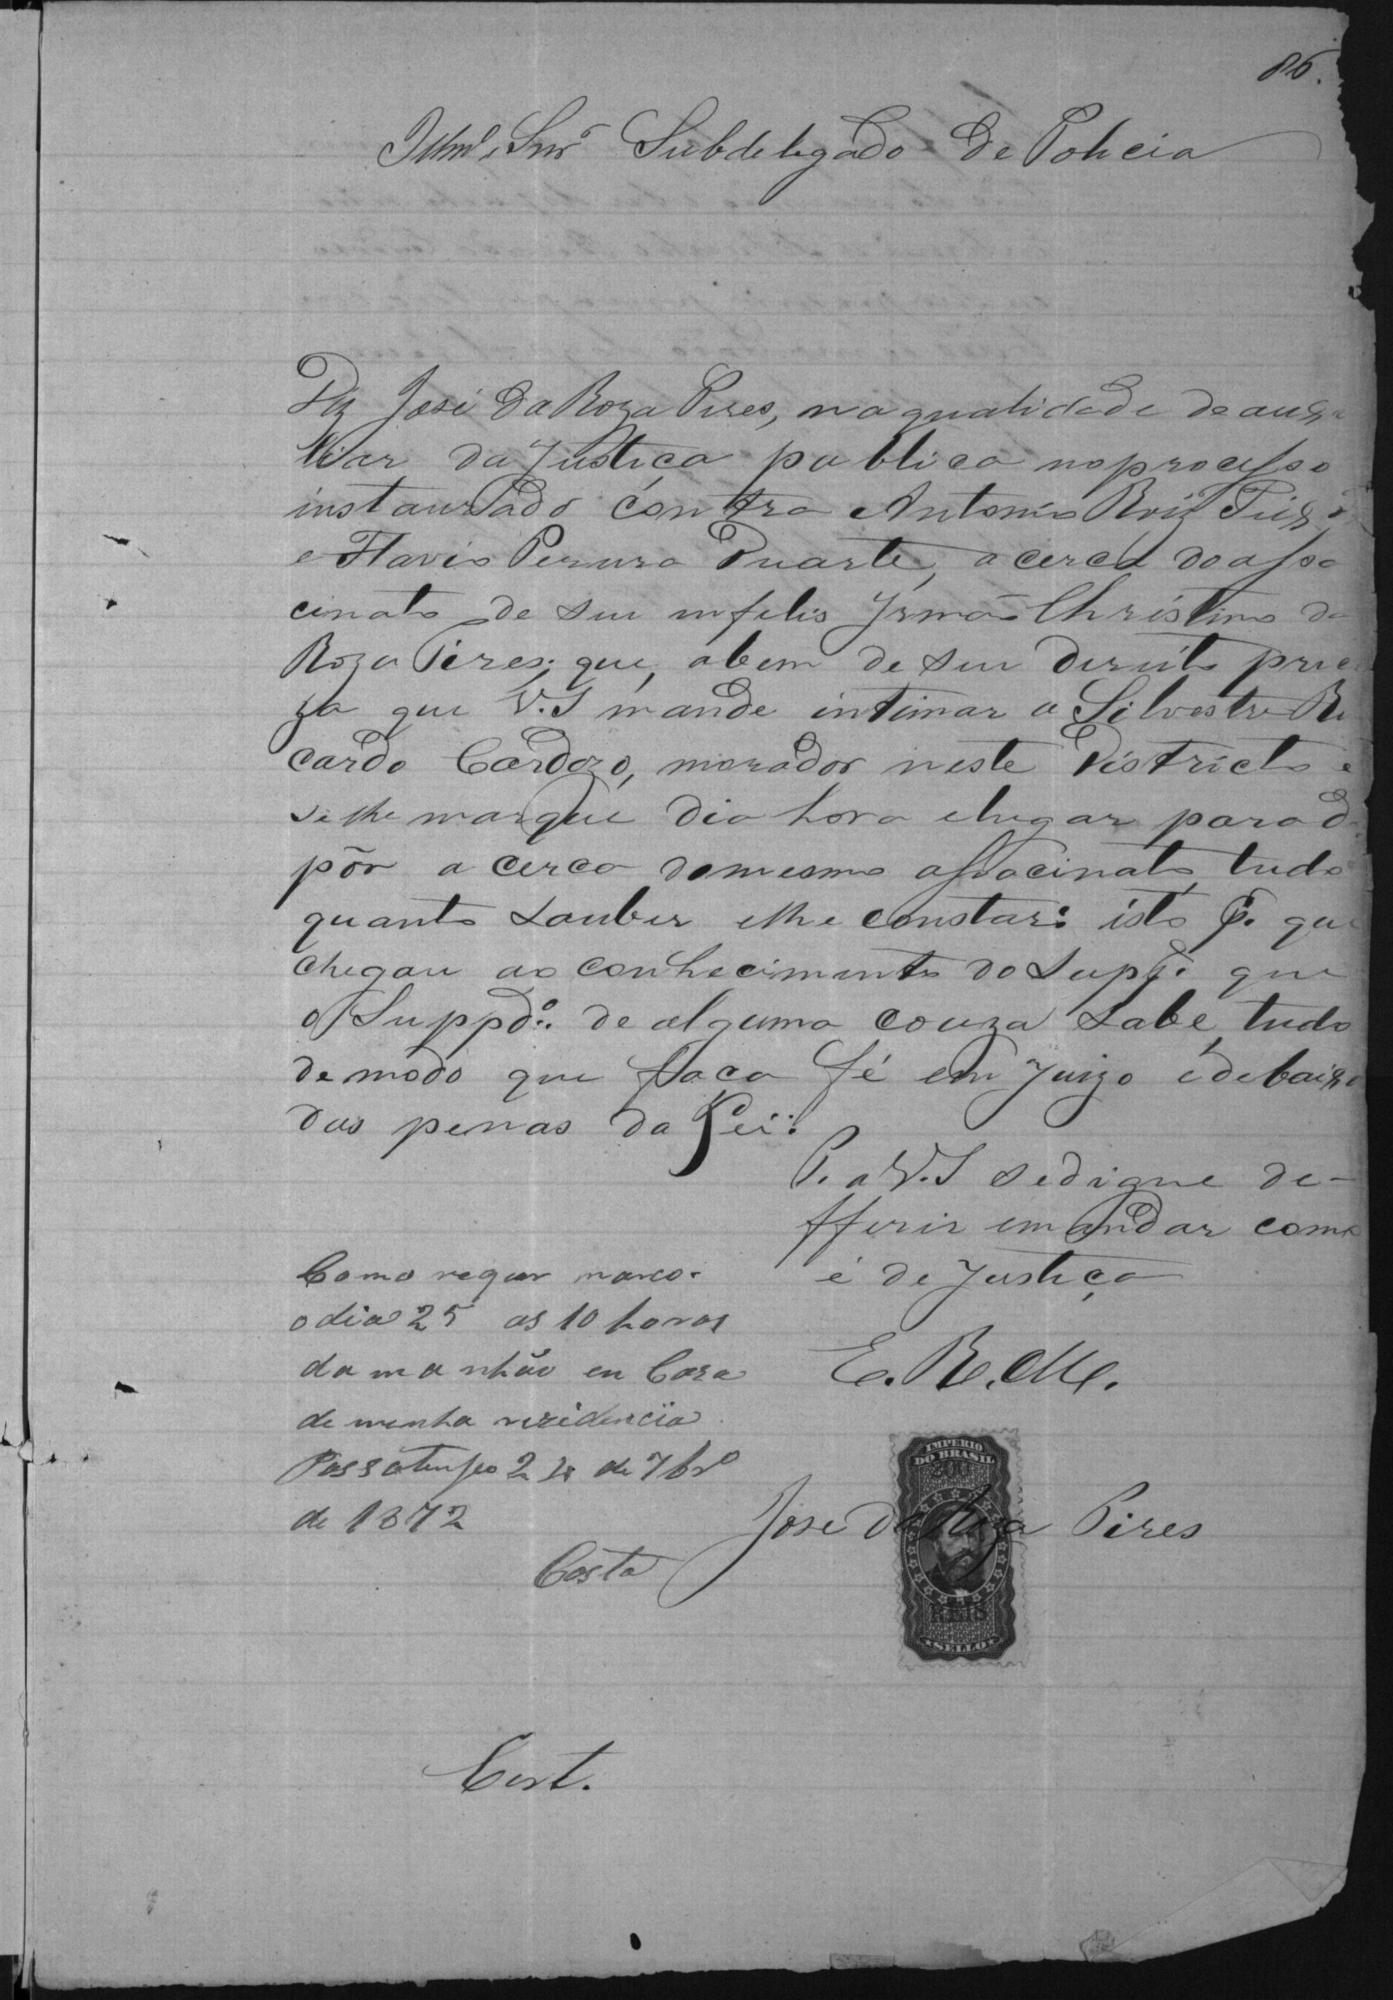 86.
Illmo. Snr. Subdelegado de Policia
Diz José da Roza Pires, na qualidade de auxi
liar da Justiça publica no processo
instaurado contra Antonio Roiz
e Flavio Perura Duarte, a cerca do assa
cinato de seu infelis Irmão Christino da
Roza Pires; que, abem de seu direito prec
za que V.S mande intimar a Silvestre Ri
cardo Cardozo, morador neste Districto e
se lhe marque dia hora elugar para d
pôr a cerca domesmo assacinato, tudo
quanto souber elhe constar: isto p. que
chegou ao conhecimento do Suppe. que
o Suppdo. de alguma couza sabe, tudo
de modo que faça fé em Juizo e debaixo
das penas da Lei:
P. a V.S sedigne de-
fferir emandar como
é de Justiça
E. R. Mce.
Como requer marco
odia 25 as 10 horas
da manhão en Caza
de minha rezidencia
Passatempo 24 de 7bro
de 1872
Costa
IMPERIO
DO BRASIL
200
REIS
SELLO
Jose da Roza Pires
Cert.